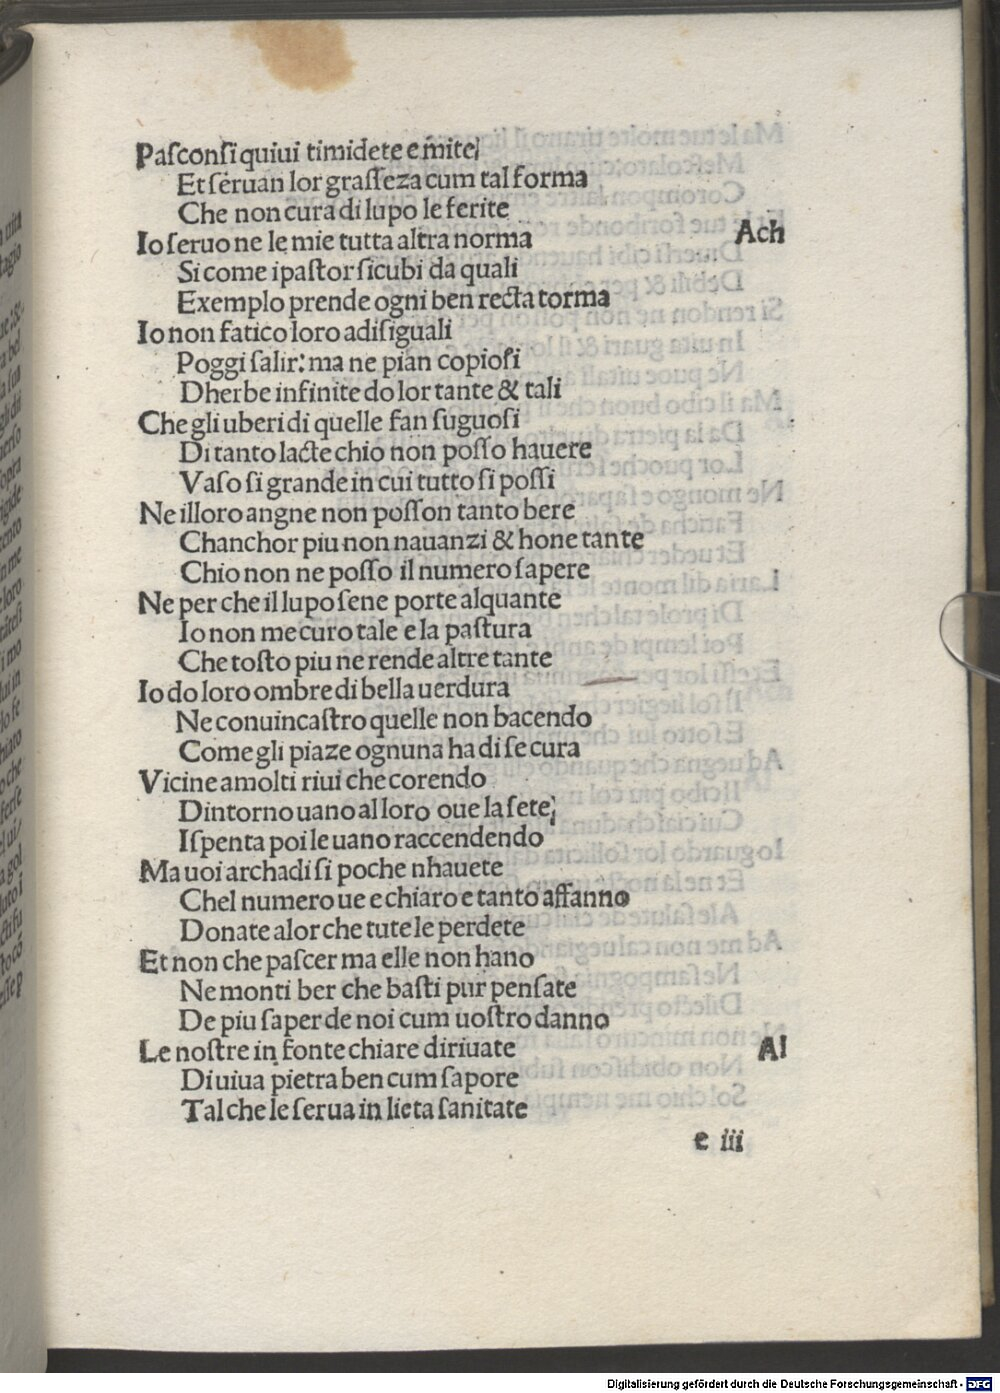 Paſconſi quiui timidete e m̃ite;
Et ſeruan lor graſſeza cum tal forma
Che non cura di lupo le ferite
Io ſeruo ne le mie tutta altra norma Ach
Si come ipaſtor ſicubi da quali
Exemplo prende ogni ben recta torma
Io non fatico loro adiſiguali
Poggi ſalir: ma ne pian copioſi
Dherbe infinite do lor tante & tali
Che gli uberi di quelle fan ſuguoſi
Di tanto lacte chio non poſſo hauere
Vaſo ſi grande in cui tutto ſi poſſi
Ne illoro angne non poſſon tanto bere
Chanchor piu non nauanzi & hone tante
Chio non ne poſſo il numero ſapere
Ne per che il lupo ſene porte alquante
Io non me curo tale e la paſtura
Che toſto piu ne rende altre tante
Io do loro ombre di bella uerdura
Ne conuincaſtro quelle non bacendo
Come gli piaze ognuna ha di ſe cura
Vicine amolti riui che corendo
Dintorno uano al loro oue la ſete;
Iſpenta poi le uano raccendendo
Ma uoi archadi ſi poche nhauete
Chel numero ue e chiaro e tanto affanno
Donate alor che tute le perdete
Et non che paſcer ma elle non hano
Ne monti ber che baſti pur penſate
De piu ſaper de noi cum uoſtro danno
Le noſtre in fonte chiare diriuate Al
Di uiua pietra ben cum ſapore
Tal che le ſerua in lieta ſanitate
e iii
Digitalisierung gefördert durch die Deutsche Forschungsgemeinschaft - DFG